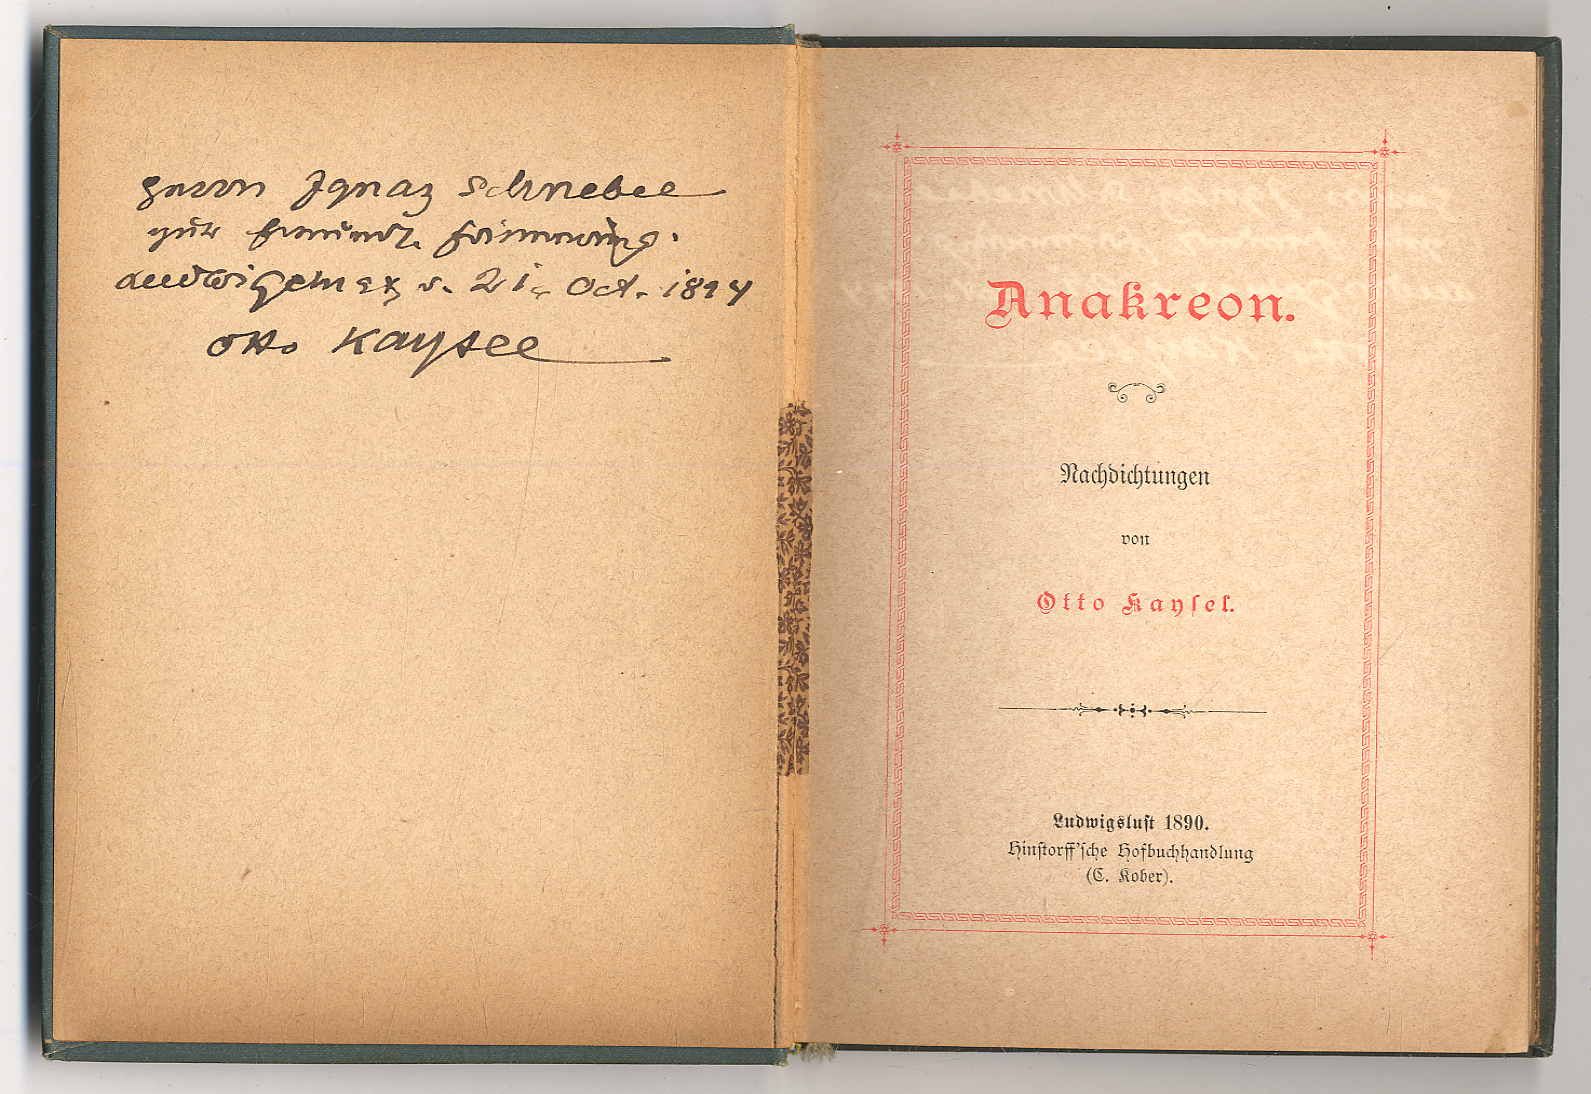 Herrn Ignaz Schnebel
zur freundl. Erinnerung.
d. 21. Oct. 1894
Otto Kaysel
Anakreon.
Nachdichtungen
von
Otto Kaysel.
Ludwigslust 1890.
Hinstorff'sche Hofbuchhandlung
(C. Kober).